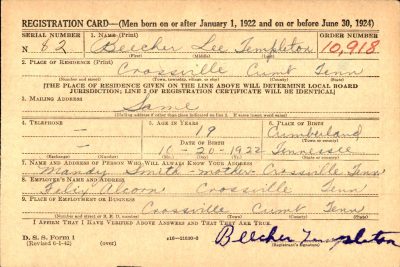 REGISTRATION CARD—(Men born on or after January 1, 1922 and on or before June 30, 1924)
SERIAL NUMBER 1. NAME (Print) ORDER NUMBER
N 82 Beecher Lee Templeton 10,918
(First) (Middle) (Last)
2. PLACE OF RESIDENCE (Print)
Crossville Cumb Tenn
(Number and street) (Town, township, village, or city) (County) (State)
[THE PLACE OF RESIDENCE GIVEN ON THE LINE ABOVE WILL DETERMINE LOCAL BOARD
JURISDICTION; LINE 2 OF REGISTRATION CERTIFICATE WILL BE IDENTICAL]
3. MAILING ADDRESS
Same
[Mailing address if other than place indicated on line 2. If same insert word same]
4. TELEPHONE 5. AGE IN YEARS 6. PLACE OF BIRTH
- 19 Cumberland
DATE OF BIRTH (Town or county)
- 10-20-1922 Tennessee
(Exchange) (Number) (Mo.) (Day) (Yr.) (State or country)
7. NAME AND ADDRESS OF PERSON WHO WILL ALWAYS KNOW YOUR ADDRESS
Mandy Smith - mother - Crossville Tenn
8. EMPLOYER'S NAME AND ADDRESS
Felix Alcorn Crossville Tenn
9. PLACE OF EMPLOYMENT OR BUSINESS
Crossville Cumb Tenn
(Number and street or R. F. D. number) (Town) (County) (State)
I AFFIRM THAT I HAVE VERIFIED ABOVE ANSWERS AND THAT THEY ARE TRUE.
D. S. S. Form 1 Beecher Templeton
(Revised 6-1-42) (over) (Registrant's signature)